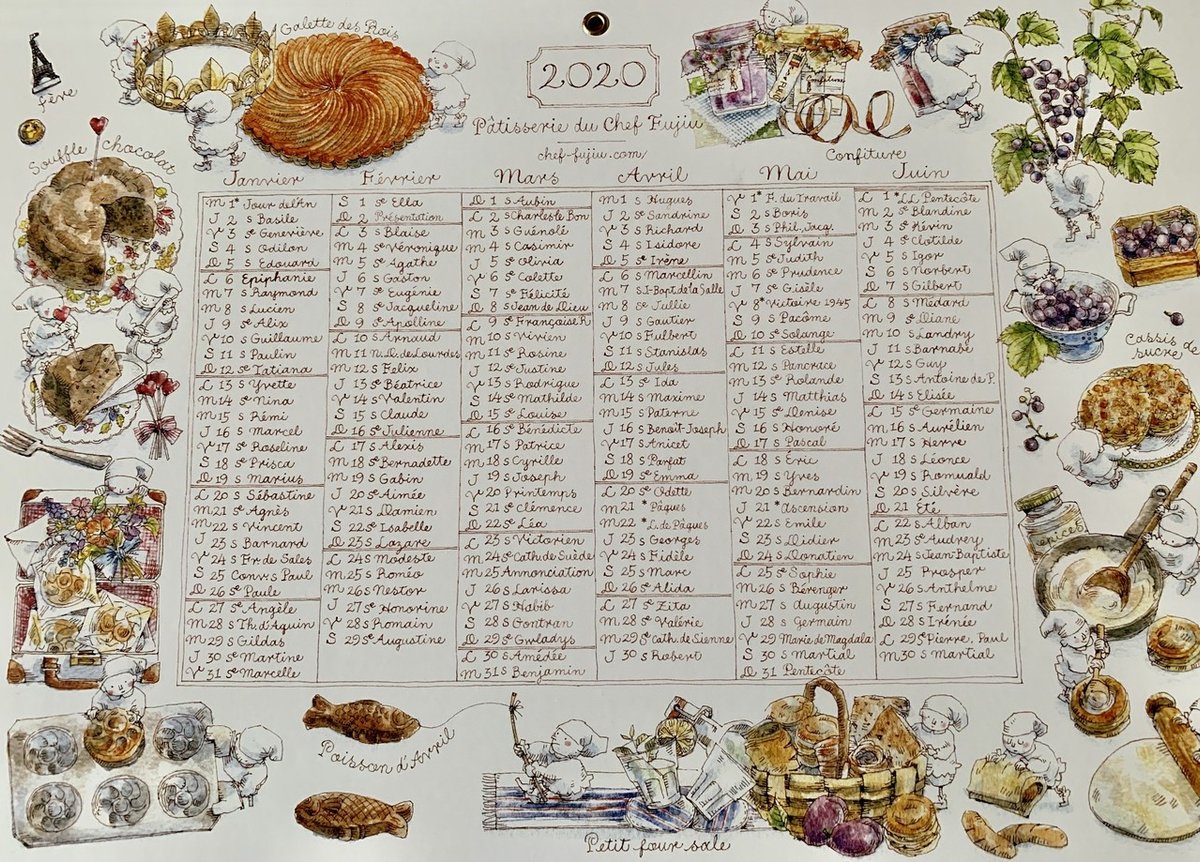 Galette des Rois
fève
Souffle chocolat
2020
Pâtisserie du Chef Fujiu
chef-fujiu.com/
Confiture
Cassis de
sucre
Janvier
M 1* Jour de l'An
J 2 s Basile
V 3 se Geneviève
S 4 s Odilon
D 5 s Edouard
L 6 Epiphanie
M 7 s Raymond
M 8 s Lucien
J 9 se Alix
V 10 s Guillaume
S 11 s Paulin
D 12 se Tatiana
L 13 se Yvette
M 14 se Nina
M 15 s Rémi
J 16 s Marcel
V 17 se Roseline
S 18 se Prisca
D 19 s Marius
L 20 s Sébastine
M 21 se Agnès
M 22 s Vincent
J 23 s Barnard
V 24 s Fr de Sales
S 25 Conv s Paul
D 26 se Paule
L 27 se Angèle
M 28 s Th. d'Aquin
M 29 s Gildas
J 30 se Martine
V 31 se Marcelle
Février
S 1 se Ella
D 2 Présentation
L 3 s Blaise
M 4 se Véronique
M 5 se Agathe
J 6 s Gaston
V 7 se Eugénie
S 8 se Jacqueline
D 9 se Apolline
L 10 s Arnaud
M 11 N.D. de Lourdes
M 12 s Felix
J 13 se Béatrice
V 14 s Valentin
S 15 s Claude
D 16 se Julienne
L 17 s Alexis
M 18 se Bernadette
M 19 s Gabin
J 20 se Aimée
V 21 s Damien
S 22 se Isabelle
D 23 s Lazare
L 24 s Modeste
M 25 s Roméo
M 26 s Nestor
J 27 se Honorine
V 28 s Romain
S 29 se Augustine
Mars
D 1 s Aubin
L 2 s Charles le Bon
M 3 s Guénolé
M 4 s Casimir
J 5 s Olivia
V 6 se Colette
S 7 se Félicité
D 8 s Jean de Dieu
L 9 se Française R
M 10 s Vivien
M 11 se Rosine
J 12 se Justine
V 13 s Rodrigue
S 14 se Mathilde
D 15 se Louise
L 16 se Bénédicte
M 17 s Patrice
M 18 s Cyrille
J 19 s Joseph
V 20 Printemps
S 21 se Clémence
D 22 se Léa
L 23 s Victorien
M 24 se Cath. de Suède
M 25 Annonciation
J 26 s Larissa
V 27 s Habib
S 28 s Gontran
D 29 se Gwladys
L 30 s Amédée
M 31 s Benjamin
Avril
M 1 s Hugues
J 2 se Sandrine
V 3 s Richard
S 4 s Isidore
D 5 se Irène
L 6 s Marcellin
M 7 s J-Bapt. de la Salle
M 8 se Jullie
J 9 s Gautier
V 10 s Fulbert
S 11 s Stanislas
D 12 s Jules
L 13 se Ida
M 14 s Maxime
M 15 s Paterne
J 16 s Benoît-Joseph
V 17 s Anicet
S 18 s Parfat
D 19 se Emma
L 20 se Odette
M 21 * Pâques
M 22 * L. de Pâques
J 23 s Georges
V 24 s Fidèle
S 25 s Marc
D 26 se Alida
L 27 se Zita
M 28 se Valérie
M 29 se Cath. de Sienne
J 30 s Robert
Mai
V 1* F. du Travail
S 2 s Boris
D 3 s Phil, Jacq.
L 4 s Sylvain
M 5 se Judith
M 6 se Prudence
J 7 se Gisèle
V 8* Victoire 1945
S 9 s Pacôme
D 10 se Solange
L 11 s Estelle
M 12 s Pancrace
M 13 se Rolande
J 14 s Matthias
V 15 se Denise
S 16 s Honoré
D 17 s Pascal
L 18 s Éric
M 19 s Yves
M 20 s Bernardin
J 21 * Ascension
V 22 s Emile
S 23 s Didier
D 24 s Donatien
L 25 se Sophie
M 26 s Bérenger
M 27 s Augustin
J 28 s Germain
V 29 Marie de Magdala
S 30 s Martial
D 31 Pentecôte
Juin
L 1* LL Pentecôte
M 2 se Blandine
M 3 s Kévin
J 4 se Clotilde
V 5 s Igor
S 6 s Norbert
D 7 s Gilbert
L 8 s Médard
M 9 se Diane
M 10 s Landry
J 11 s Barnabé
V 12 s Guy
S 13 s Antoine de P.
D 14 s Elisée
L 15 se Germaine
M 16 s Aurélien
M 17 s Herve
J 18 s Léonce
V 19 s Romuald
S 20 s Silvère
D 21 Eté
L 22 s Alban
M 23 se Audrey
M 24 s Jean Baptiste
J 25 Prosper
V 26 s Anthelme
S 27 s Fernand
D 28 s Irénée
L 29 s Pierre, Paul
M 30 s Martial
Poisson d'Avril
Petit four sale